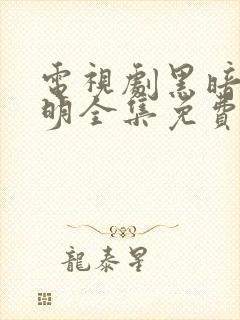 電視劇黑暗
明全集免費
龍泰星